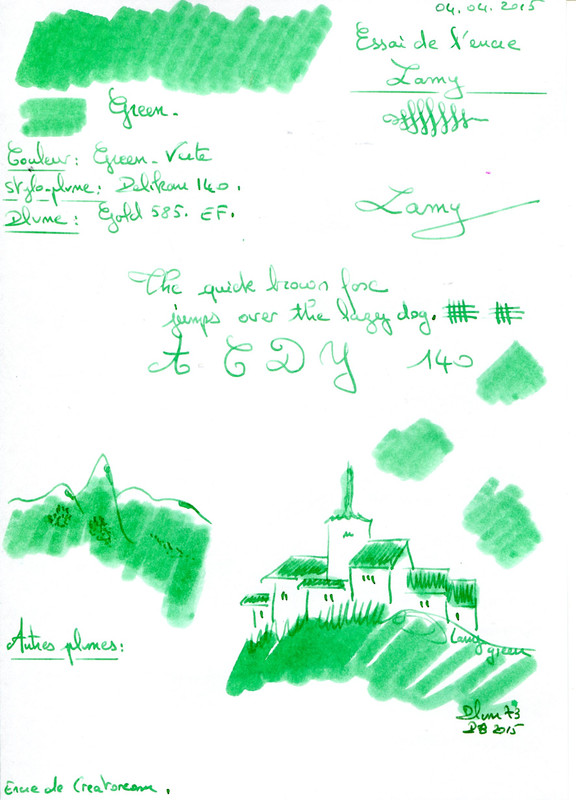 04.04.2015
Essai de l'encre
Lamy
Green.
Couleur: Green - Verte
Stylo-plume: Pelikan 140.
Plume: Gold 585. EF.
Lamy
The quick brown fox
jumps over the lazy dog.
A C D Y 140
Autres plumes:
Lamy
green
Plum73
2015
Encre de